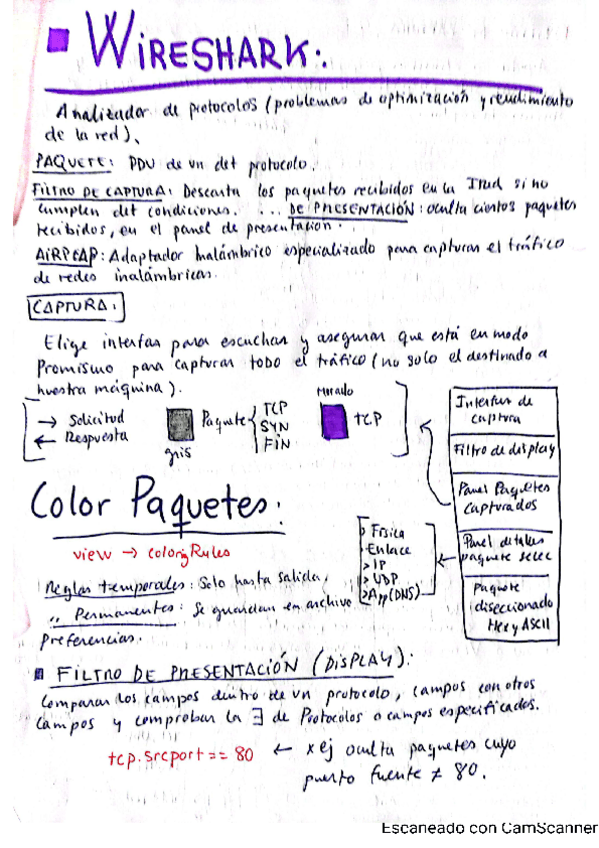 WIRESHARK:
Analizador de protocolos (problemas de optimización y rendimiento
de la red).
PAQUETE: PDU de un det protocolo.
FILTRO DE CAPTURA: Descarta los paquetes recibidos en la si no
cumplen det condiciones. ... DE PRESENTACIÓN: oculta ciertos paquetes
recibidos, en el panel de presentación.
AIRPCAP: Adaptador inalámbrico especializado para capturar el tráfico
de redes inalámbricas.
CAPTURA:
Elige interfaz para escuchar y asegurar que está en modo
Promiscuo para capturar todo el tráfico (no solo el destinado a
nuestra máquina).
→ Solicitud
← Respuesta
gris
Paquete { TCP
SYN
FIN
Morado
TCP
Interfaz de
captura
Filtro de display
Panel Paquetes
Capturados
Panel detalles
paquete selec
Paquete
diseccionado
Hex y ASCII
> Física
> Enlace
> IP
> UDP
> App(DNS)
Color Paquetes:
view → coloring Rules
Reglas temporales: Solo hasta salida.
,, Permanentes: Se guardan en archivo
preferencias.
FILTRO DE PRESENTACIÓN (DISPLAY):
Comparar los campos dentro de un protocolo, campos con otros
campos y comprobar la ∃ de Protocolos o campos especificados.
tcp.srcport == 80 ← x ej oculta paquetes cuyo
puerto fuente ≠ 80.
Escaneado con CamScanner